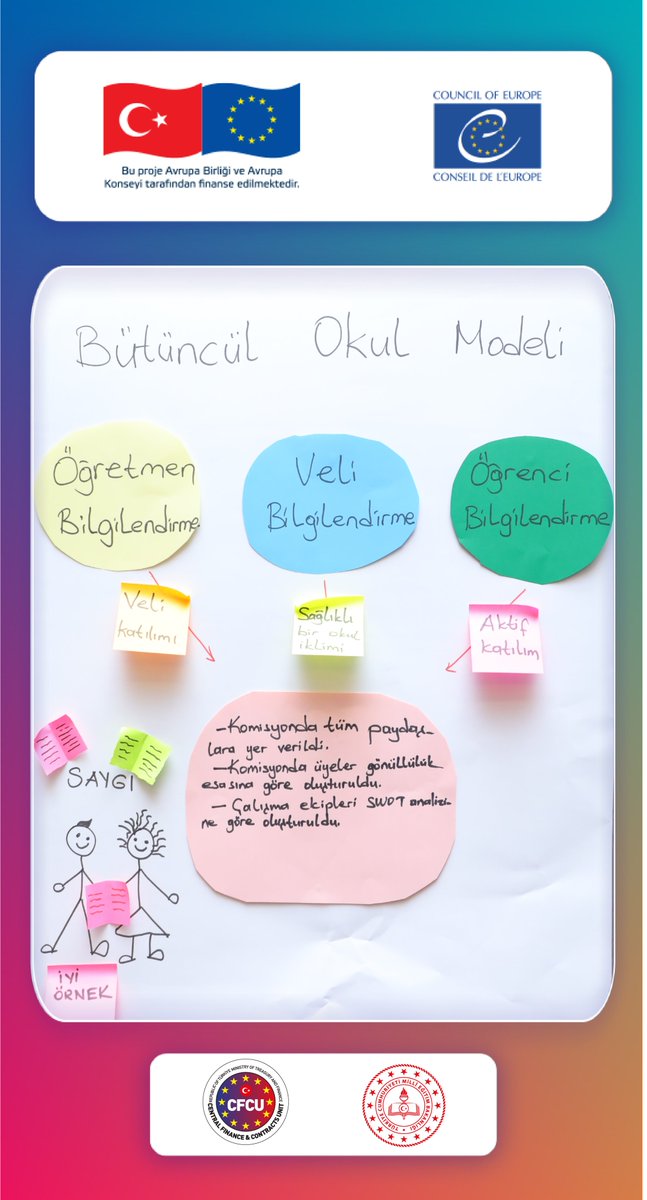 Bu proje Avrupa Birliği ve Avrupa
Konseyi tarafından finanse edilmektedir.
COUNCIL OF EUROPE
CONSEIL DE L'EUROPE
Bütüncül Okul Modeli
Öğretmen
Bilgilendirme
Veli
Bilgilendirme
Öğrenci
Bilgilendirme
Veli
katılımı
Sağlıklı
bir okul
iklimi
Aktif
katılım
-Komisyonda tüm paydaş-
lara yer verildi.
-Komisyonda üyeler gönüllülük
esasına göre oluşturuldu.
- Çalışma ekipleri SWOT analizi-
ne göre oluşturuldu.
SAYGI
İYİ
ÖRNEK
REPUBLIC OF TÜRKİYE MINISTRY OF TREASURY AND FINANCE
CFCU
CENTRAL FINANCE & CONTRACTS UNIT
TÜRKİYE CUMHURİYETİ MİLLÎ EĞİTİM BAKANLIĞI